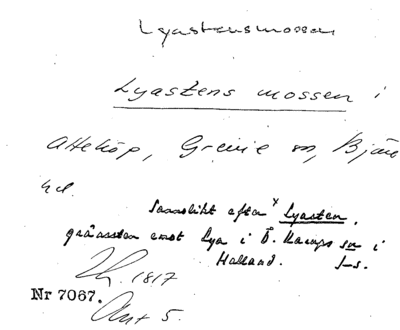 Lyastensmossen
Lyastens mossen i
Atteköp, Grevie sn, Bjäre
hd.
Sannolikt efter ˣLyasten,
gränssten emot Lya i Ö. Karups sn i
Halland. J-s.
1817
Nr 7067.
Ant 5.